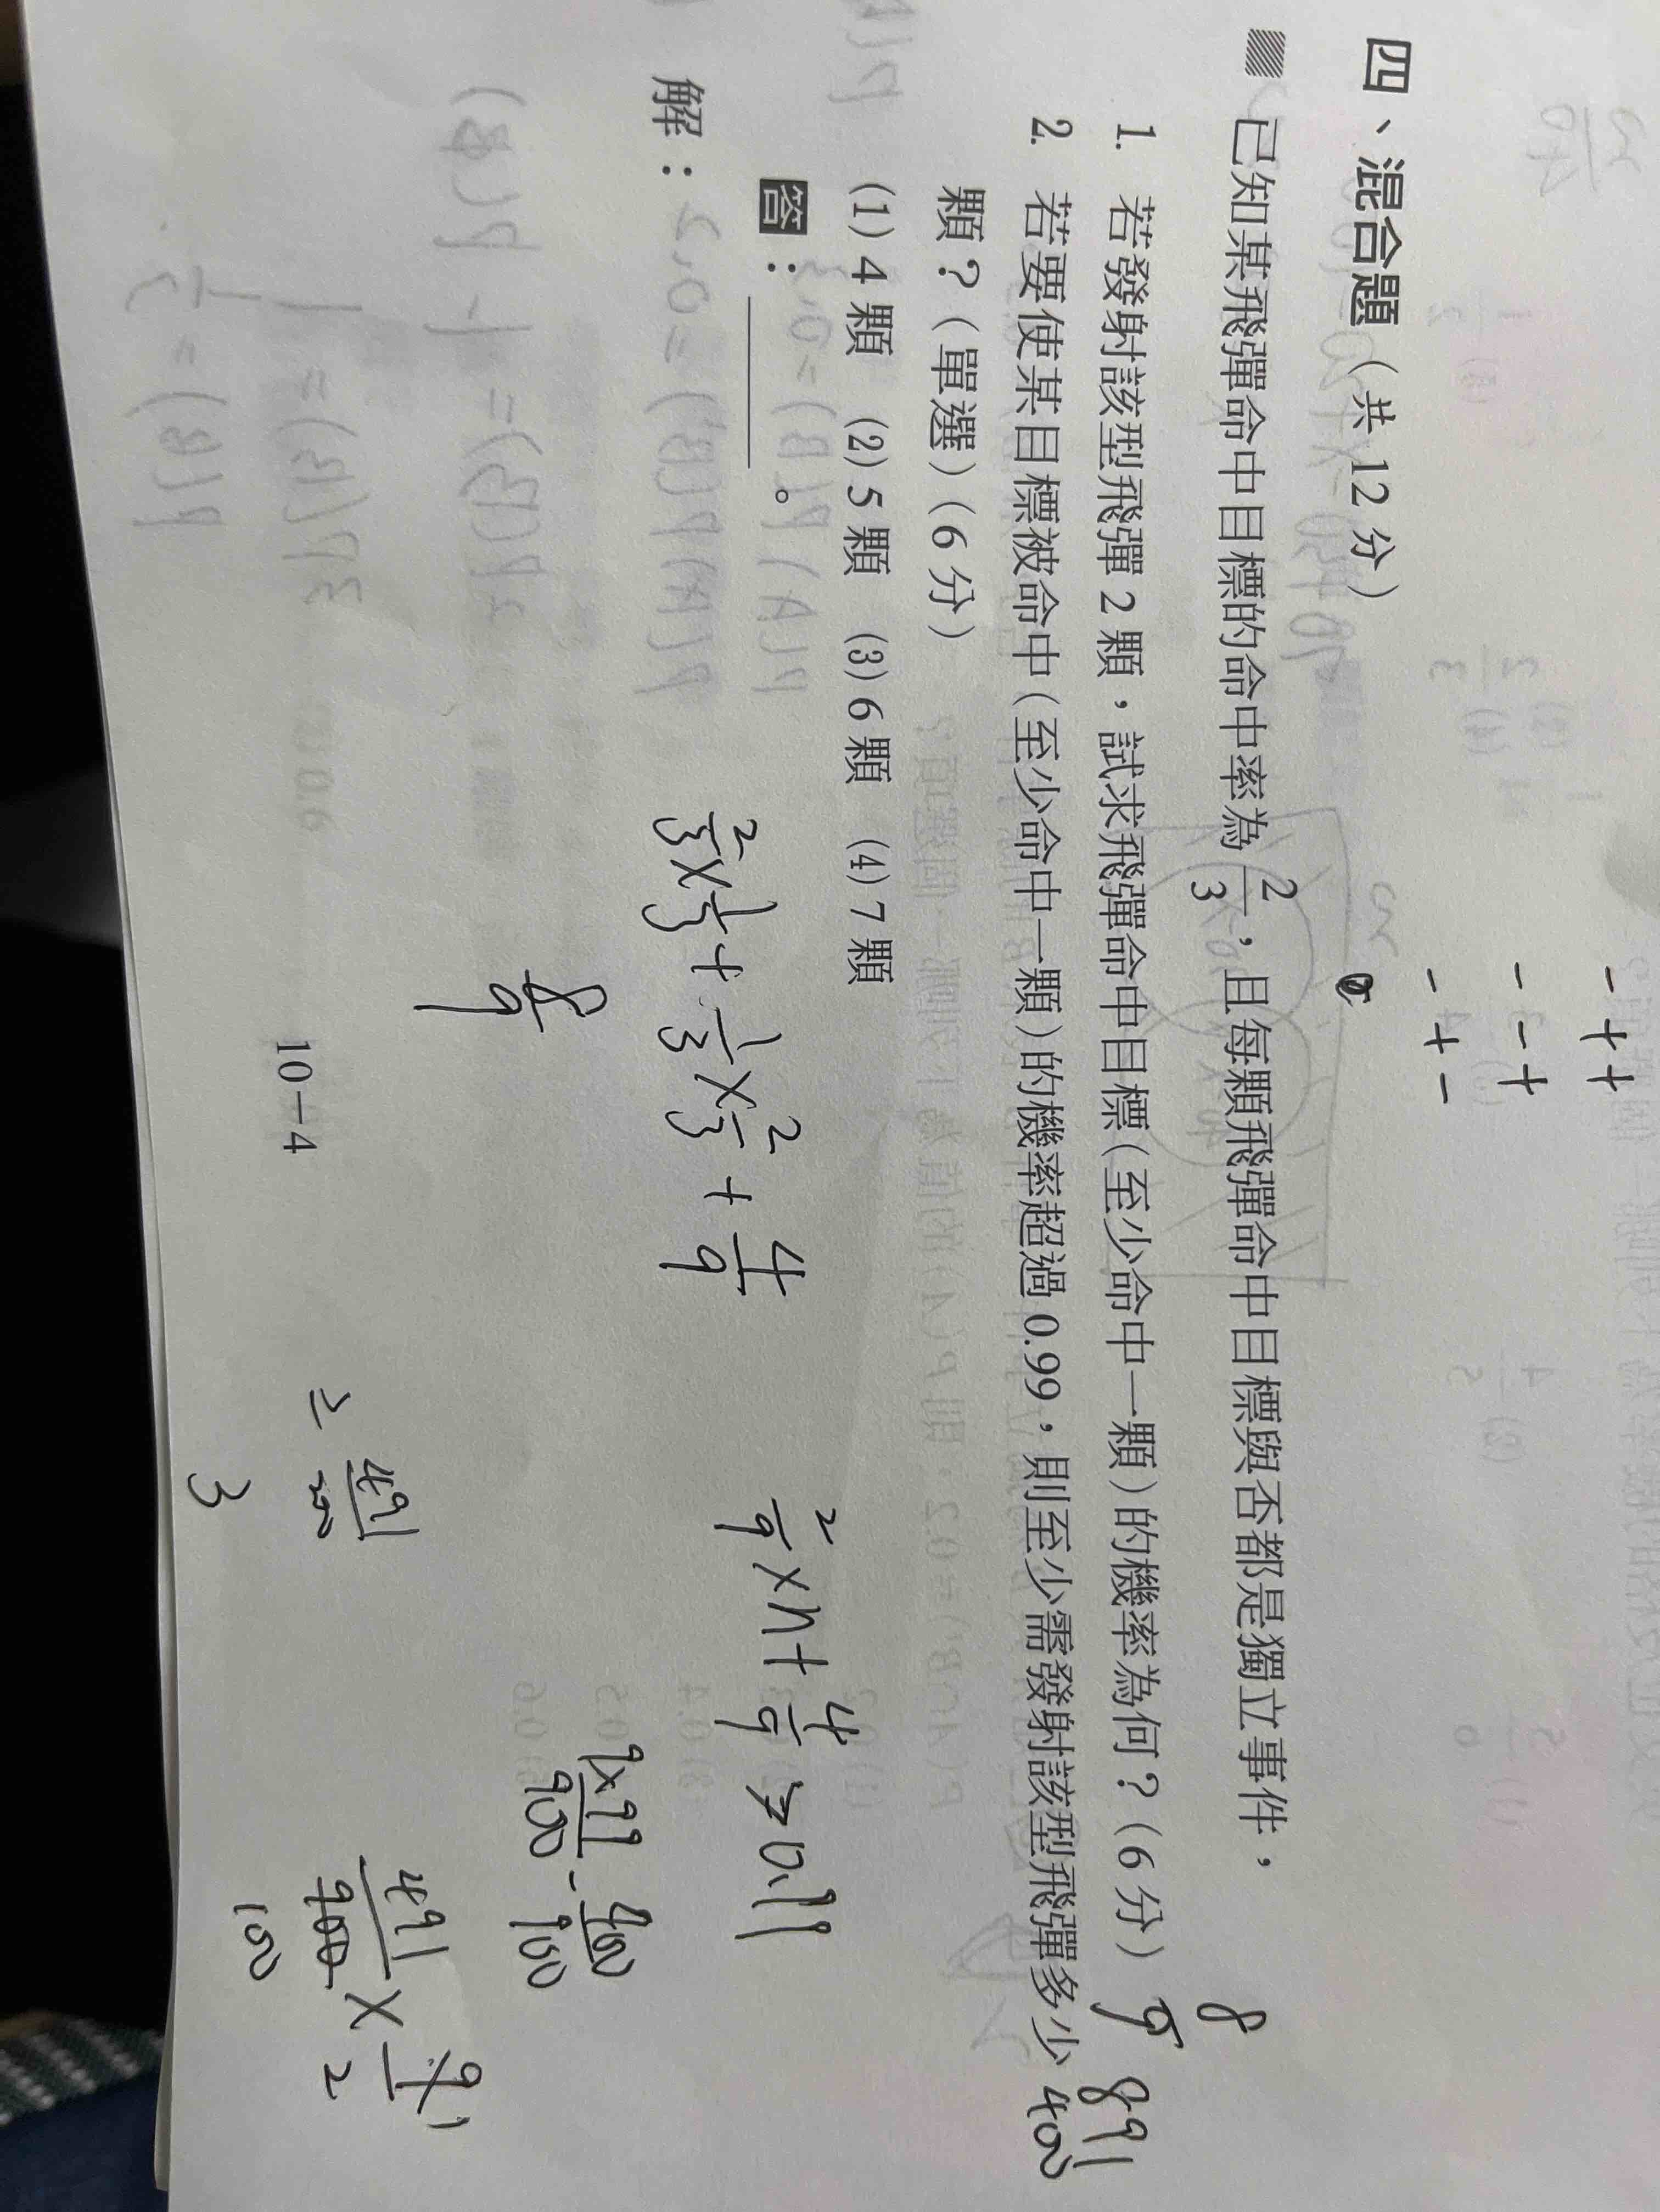 四、混合題（共 12 分）
已知某飛彈命中目標的命中率為 2/3，且每顆飛彈命中目標與否都是獨立事件，
1. 若發射該型飛彈 2 顆，試求飛彈命中目標（至少命中一顆）的機率為何？（6 分）
2. 若要使某目標被命中（至少命中一顆）的機率超過 0.99，則至少需發射該型飛彈多少
顆？（單選）（6 分）
(1) 4 顆 (2) 5 顆 (3) 6 顆 (4) 7 顆
答：＿＿＿。
解：
- + +
- - +
- + -
8
9
891
400
2/3 × 1/3 + 1/3 × 2/3 + 4/9
8/9
2/9 × n + 4/9 ≥ 0.99
9×99/900 - 400/900
491/900 × 9/2
100
491/200
3
10－4